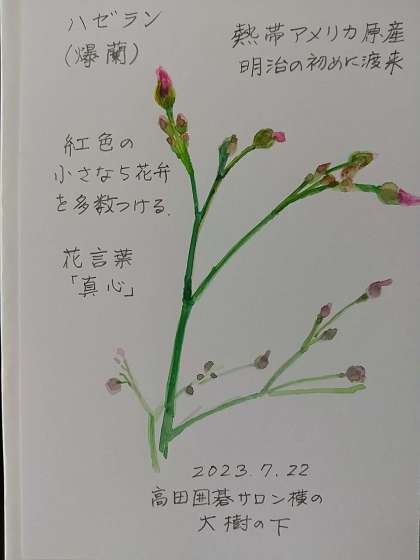 ハゼラン
(爆蘭)
熱帯アメリカ原産
明治の初めに渡来
紅色の
小さな5花弁
を多数つける.
花言葉
「真心」
2023.7.22
高田囲碁サロン横の
大樹の下